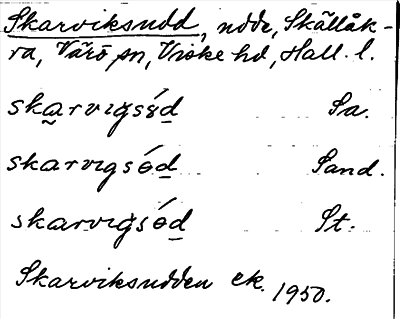 Skarviksudd, udde, Skällåk-
ra, Värö sn, Viske hd, Hall. l.
skarvigsɵ́d Sa.
skarvigsɵ́d Sand.
skarvigsɵ́d St.
Skarviksudden ek. 1950.